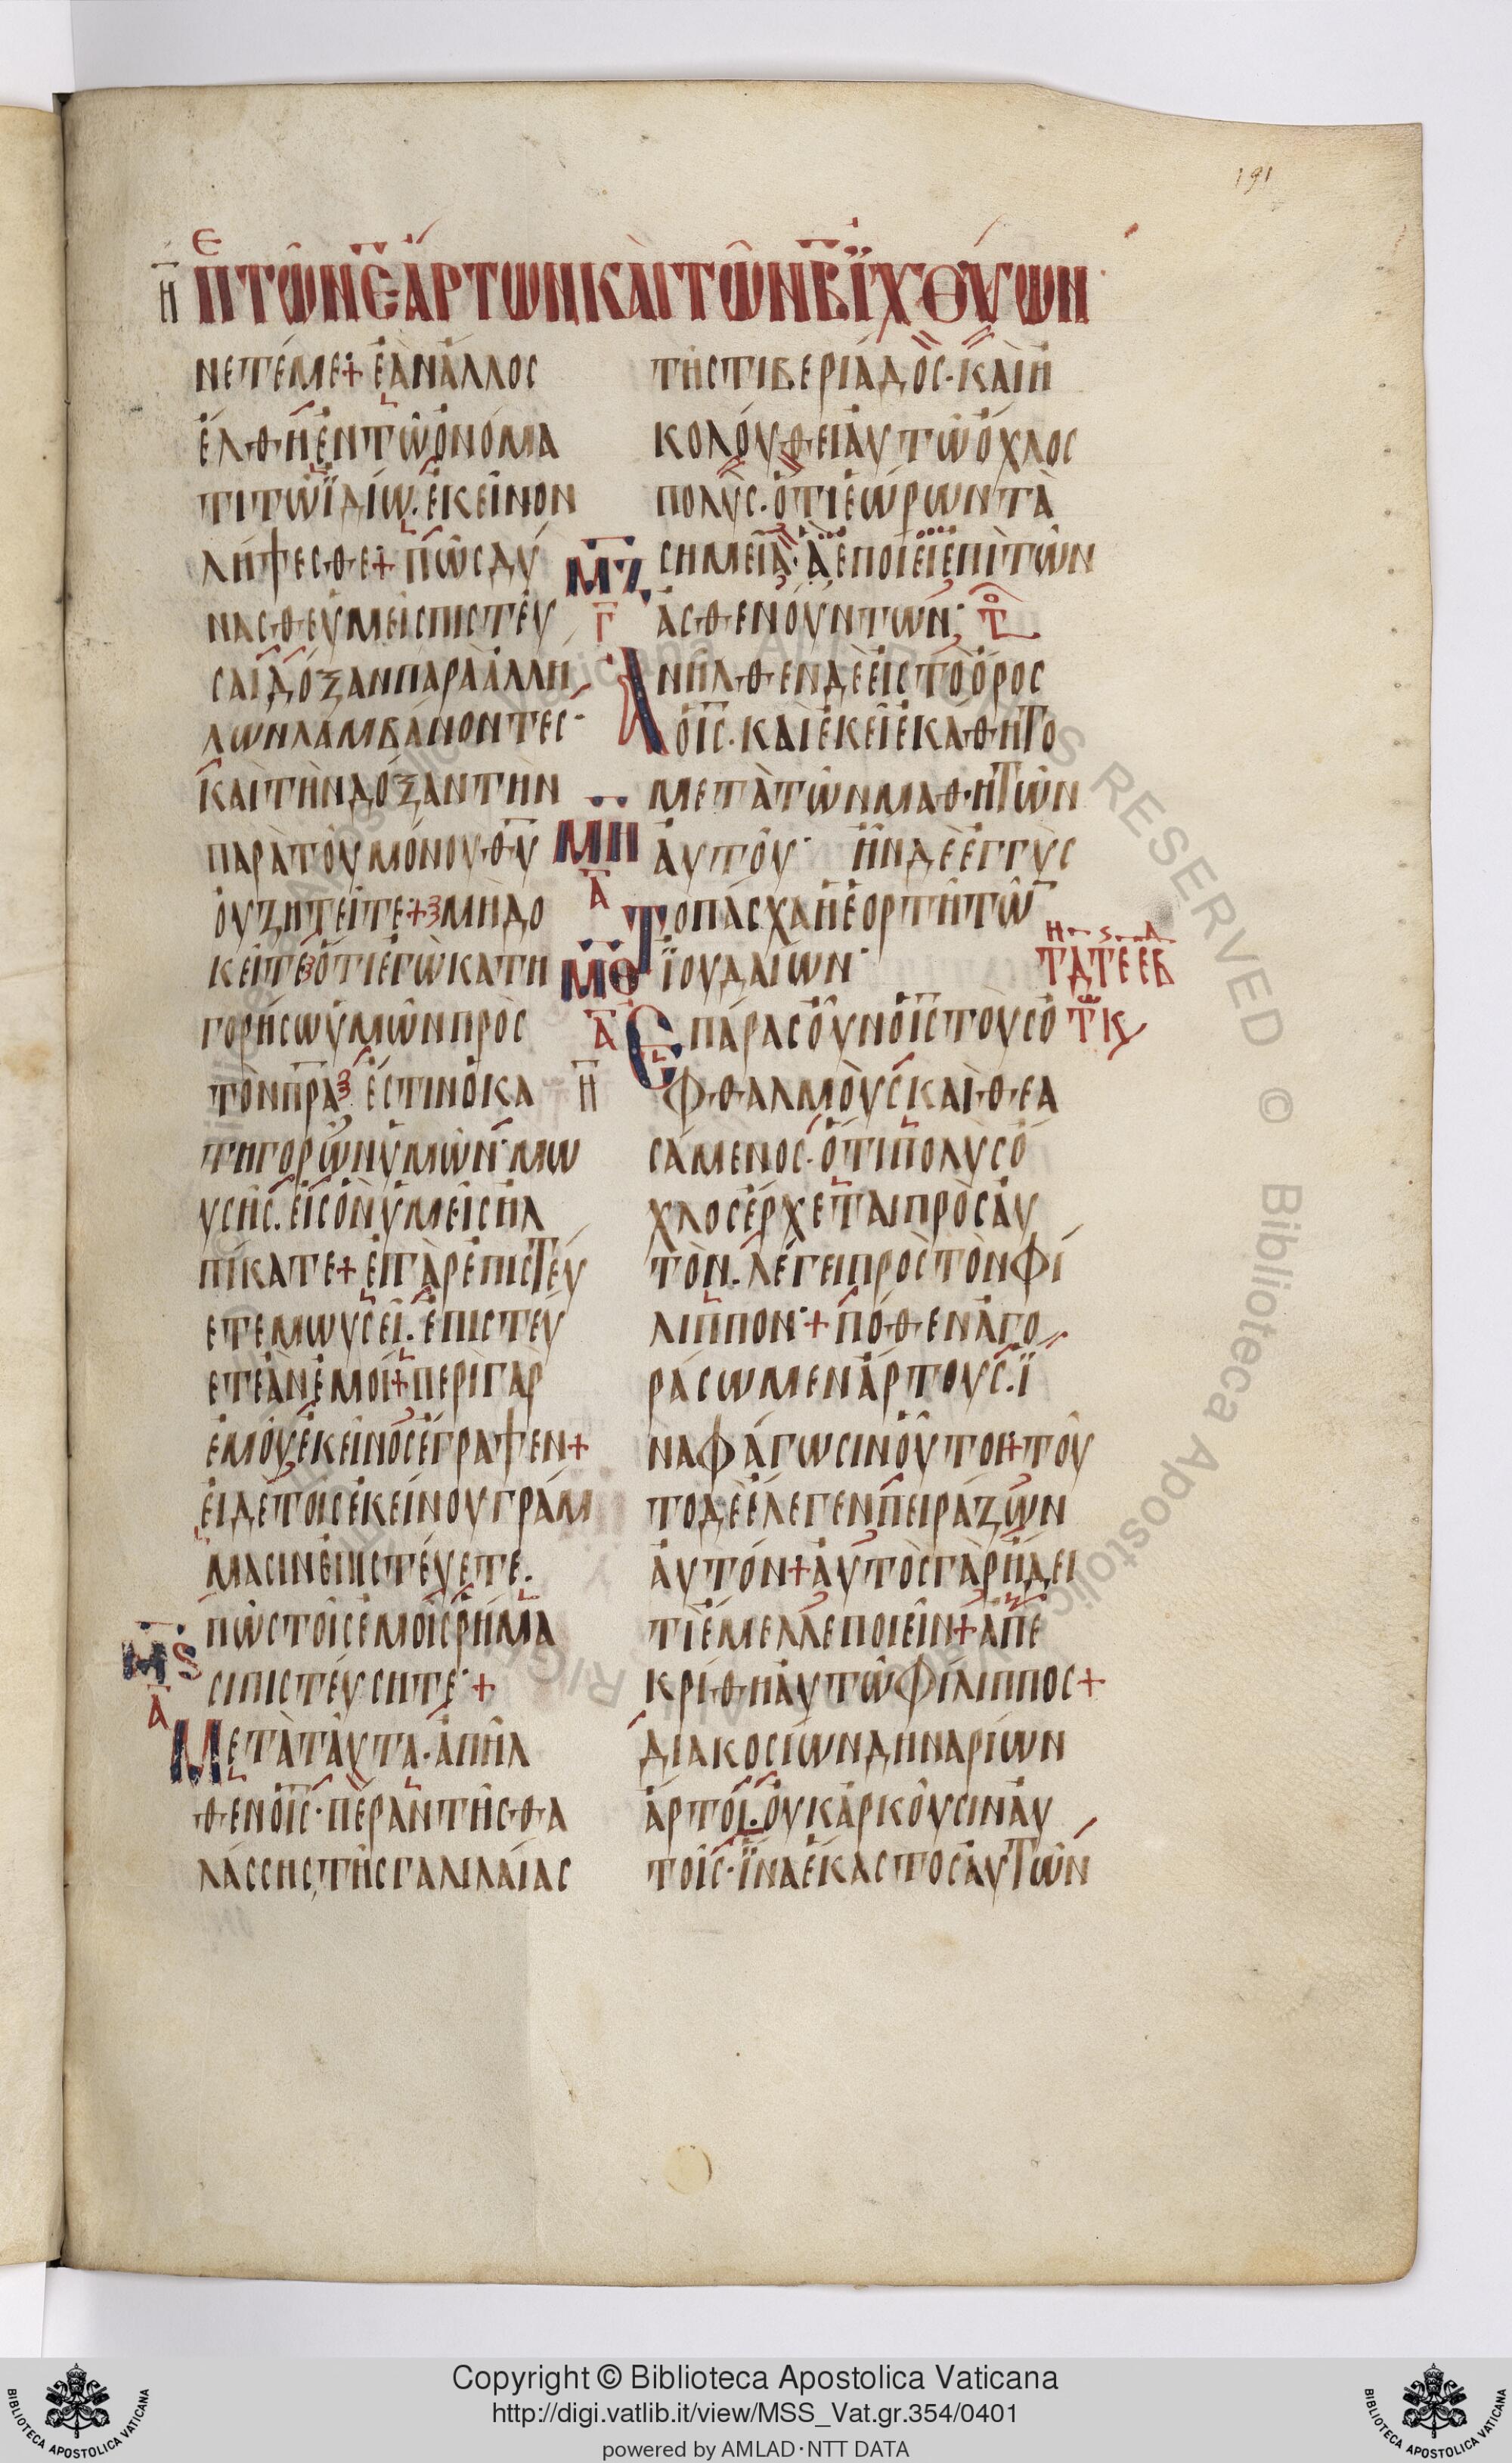 191
Η ΠΕ ΤΩΝ Ε ΑΡΤΩΝ ΚΑΙ ΤΩΝ Β ΙΧΘΥΩΝ
ΝΕΤΕΜΕ+ΕΑΝΑΛΛΟϹ
ΕΛΘΗΕΝΤΩΟΝΟΜΑ
ΤΙΤΩΪΔΙΩ·ΕΚΕΙΝΟΝ
ΛΗΨΕϹΘΕ+ΠΩϹΔΥ
ΝΑϹΘΕΥΜΕΙϹΠΙϹΤΕΥ
ϹΑΙΔΟΞΑΝΠΑΡΑΑΛΛΗ
ΛΩΝΛΑΜΒΑΝΟΝΤΕϹ·
ΚΑΙΤΗΝΔΟΞΑΝΤΗΝ
ΠΑΡΑΤΟΥΜΟΝΟΥΘΥ
ΟΥΖΗΤΕΙΤΕ+ΜΗΔΟ
ΚΕΙΤΕΟΤΙΕΓΩΚΑΤΗ
ΓΟΡΗϹΩΥΜΩΝΠΡΟϹ
ΤΟΝΠΡΑ ΕϹΤΙΝΟΚΑ
ΤΗΓΟΡΩΝΥΜΩΝ·ΜΩ
ΥϹΗϹ·ΕΙϹΟΝΥΜΕΙϹΗΛ
ΠΙΚΑΤΕ+ΕΙΓΑΡΕΠΙϹΤΕΥ
ΕΤΕΜΩΥϹΕΙ·ΕΠΙϹΤΕΥ
ΕΤΕΑΝΕΜΟΙ+ΠΕΡΙΓΑΡ
ΕΜΟΥΕΚΕΙΝΟϹΕΓΡΑΨΕΝ+
ΕΙΔΕΤΟΙϹΕΚΕΙΝΟΥΓΡΑΜ
ΜΑϹΙΝΕΠΙϹΤΕΥΕΤΕ·
ΠΩϹΤΟΙϹΕΜΟΙϹΡΗΜΑ
ΜϚ ϹΙΠΙϹΤΕΥϹΗΤΕ·+
Α
ΜΕΤΑΤΑΥΤΑ·ΑΠΗΛ
ΘΕΝΟΙϹ·ΠΕΡΑΝΤΗϹΘΑ
ΛΑϹϹΗϹΤΗϹΓΑΛΙΛΑΙΑϹ
ΤΗϹΤΙΒΕΡΙΑΔΟϹ·ΚΑΙΗ
ΚΟΛΟΥΘΕΙΑΥΤΩΟΧΛΟϹ
ΠΟΛΥϹ·ΟΤΙΕΩΡΩΝΤΑ
ΜΖ ϹΗΜΕΙΑ·ΑΕΠΟΙΕΙΕΠΙΤΩΝ
Γ ΑϹΘΕΝΟΥΝΤΩΝ·
ΑΝΗΛΘΕΝΔΕΕΙϹΤΟΟΡΟϹ
ΟΙϹ·ΚΑΙΕΚΕΙΕΚΑΘΗΤΟ
ΜΕΤΑΤΩΝΜΑΘΗΤΩΝ
ΜΗ ΑΥΤΟΥ· ΗΝΔΕΕΓΓΥϹ
Α ΤΟΠΑϹΧΑΗΕΟΡΤΗΤΩ
ΜΘ ΪΟΥΔΑΙΩΝ·
Α ΕΠΑΡΑϹΟΥΝΟΙϹΤΟΥϹΟ
Η ΦΘΑΛΜΟΥϹΚΑΙΘΕΑ
ϹΑΜΕΝΟϹ·ΟΤΙΠΟΛΥϹΟ
ΧΛΟϹΕΡΧΕΤΑΙΠΡΟϹΑΥ
ΤΟΝ·ΛΕΓΕΙΠΡΟϹΤΟΝΦΙ
ΛΙΠΠΟΝ·+ΠΟΘΕΝΑΓΟ
ΡΑϹΩΜΕΝΑΡΤΟΥϹ·Ϊ
ΝΑΦΑΓΩϹΙΝΟΥΤΟΙ+ΤΟΥ
ΤΟΔΕΕΛΕΓΕΝΠΕΙΡΑΖΩΝ
ΑΥΤΟΝ+ΑΥΤΟϹΓΑΡΗΔΕΙ
ΤΙΕΜΕΛΛΕΠΟΙΕΙΝ+ΑΠΕ
ΚΡΙΘΗΑΥΤΩΦΙΛΙΠΠΟϹ+
ΔΙΑΚΟϹΙΩΝΔΗΝΑΡΙΩΝ
ΑΡΤΟΙ·ΟΥΚΑΡΚΟΥϹΙΝΑΥ
ΤΟΙϹ·ΪΝΑΕΚΑϹΤΟϹΑΥΤΩΝ
Copyright © Biblioteca Apostolica Vaticana
http://digi.vatlib.it/view/MSS_Vat.gr.354/0401
powered by AMLAD·NTT DATA
BIBLIOTECA APOSTOLICA VATICANA
BIBLIOTECA APOSTOLICA VATICANA